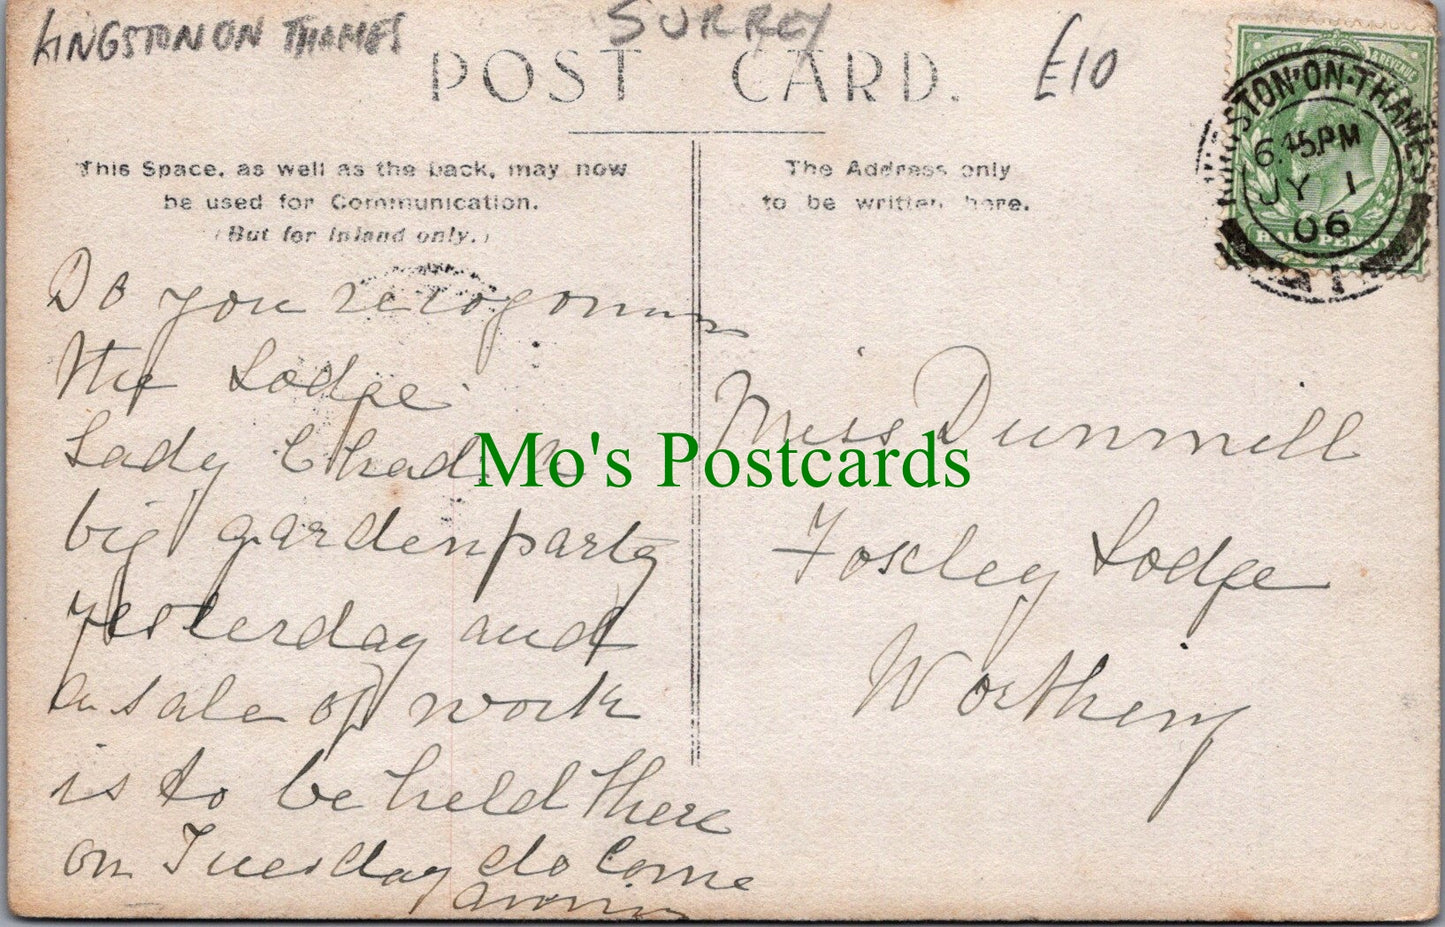 KINGSTON ON THAMES
SURREY
£10
POST CARD.
This Space, as well as the back, may now
be used for Communication.
(But for Inland only.)
The Address only
to be written here.
KINGSTON-ON-THAMES
6.45PM
JY 1
06
1
HALFPENNY
Do you
the Lodge
Lady
big garden party
yesterday and
a sale of work
is to be held there
on Tuesday do come
Miss Dunmill
Foxley Lodge
Worthing
Mo's Postcards